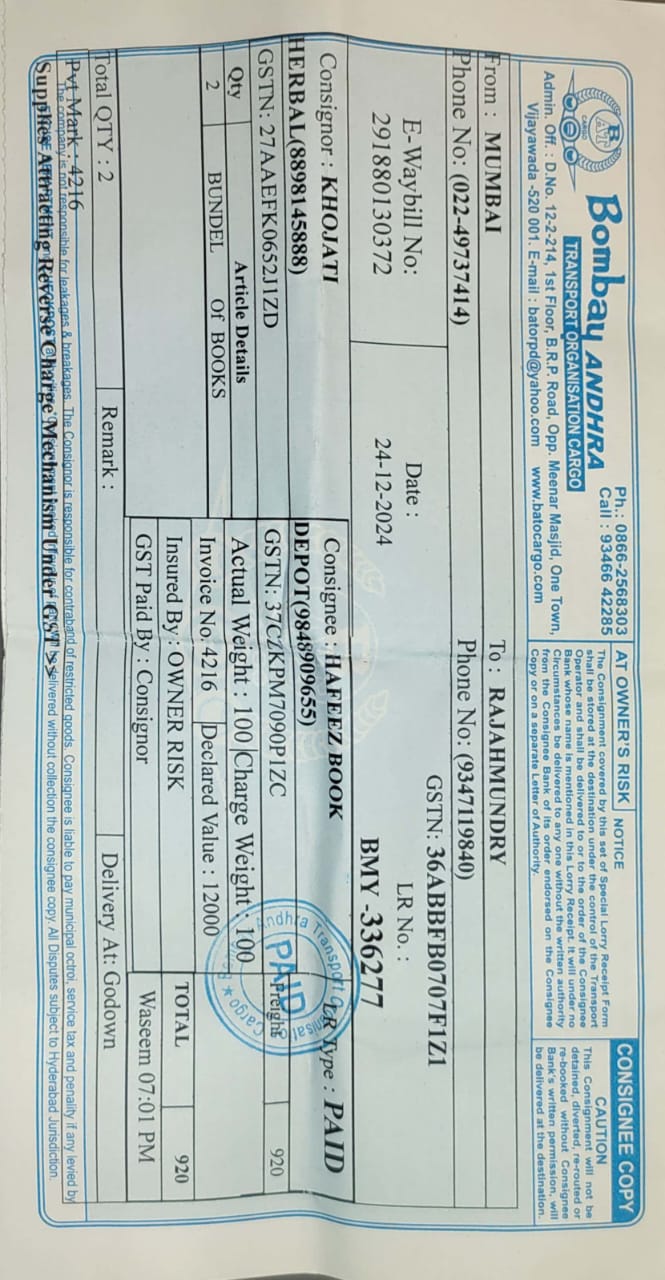 Bombay ANDHRA
TRANSPORT ORGANISATION CARGO
Ph.: 0866-2568303
Call : 93466 42285
BAT
CARGO
Admin. Off. : D.No. 12-2-214, 1st Floor, B.R.P. Road, Opp. Meenar Masjid, One Town,
Vijayawada -520 001. E-mail : batorpd@yahoo.com www.batocargo.com
AT OWNER'S RISK NOTICE
The Consignment covered by this set of Special Lorry Receipt Form
shall be stored at the destination under the control of the Transport
Operator and shall be delivered to or to the order of the Consignee
Bank whose name is mentioned in this Lorry Receipt. It will under no
Circumstances be delivered to any one without the written authority
from the Consignee Bank of its order endorsed on the Consignee
Copy or on a separate Letter of Authority.
CONSIGNEE COPY
CAUTION
This Consignment will not be
detained, diverted, re-routed or
re-booked without Consignee
Bank's written permission, will
be delivered at the destination.
From : MUMBAI
Phone No: (022-49737414)
To : RAJAHMUNDRY
Phone No: (9347119840)
GSTN: 36ABBFB0707F1Z1
E-Waybill No:
291880130372
Date :
24-12-2024
LR No. :
BMY -336277
Consignor : KHOJATI
HERBAL(8898145888)
GSTN: 27AAEFK0652J1ZD
Consignee : HAFEEZ BOOK
DEPOT(9848909655)
GSTN: 37CZKPM7090P1ZC
LR Type : PAID
Qty Article Details
2 BUNDEL Of BOOKS
Actual Weight : 100 Charge Weight : 100
Invoice No: 4216 Declared Value : 12000
Insured By : OWNER RISK
GST Paid By : Consignor
Freight 920
TOTAL 920
Waseem 07:01 PM
PAID
Total QTY : 2
Remark :
Delivery At: Godown
Pvt Mark : 4216
The company is not responsible for leakages & breakages. The Consignor is responsible for contraband of restricted goods. Consignee is liable to pay municipal octroi, service tax and penality if any levied by
be delivered without collection the consignee copy. All Disputes subject to Hyderabad Jurisdiction.
Supplies Attracting Reverse Charge Mechanism Under GST >>